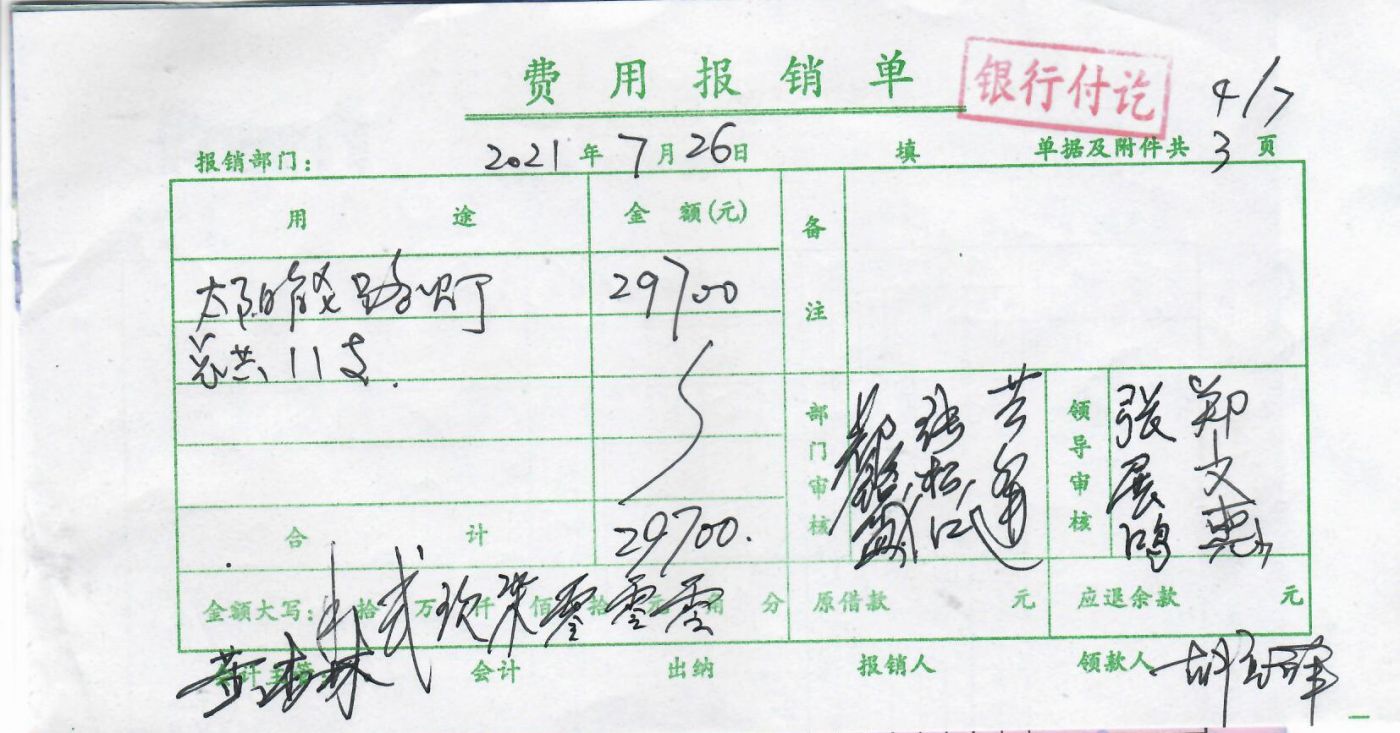 费用报销单
银行付讫
4/7
报销部门： 2021年7月26日 填 单据及附件共3页
用途 金额(元) 备注
太阳能路灯 29700
总共11支.
部门审核 领导审核 张展鸿 郑文惠
合计 29700.
金额大写： 拾贰万玖仟柒佰零拾零元零角 分 原借款 元 应退余款 元
会计主管 会计 出纳 报销人 领款人